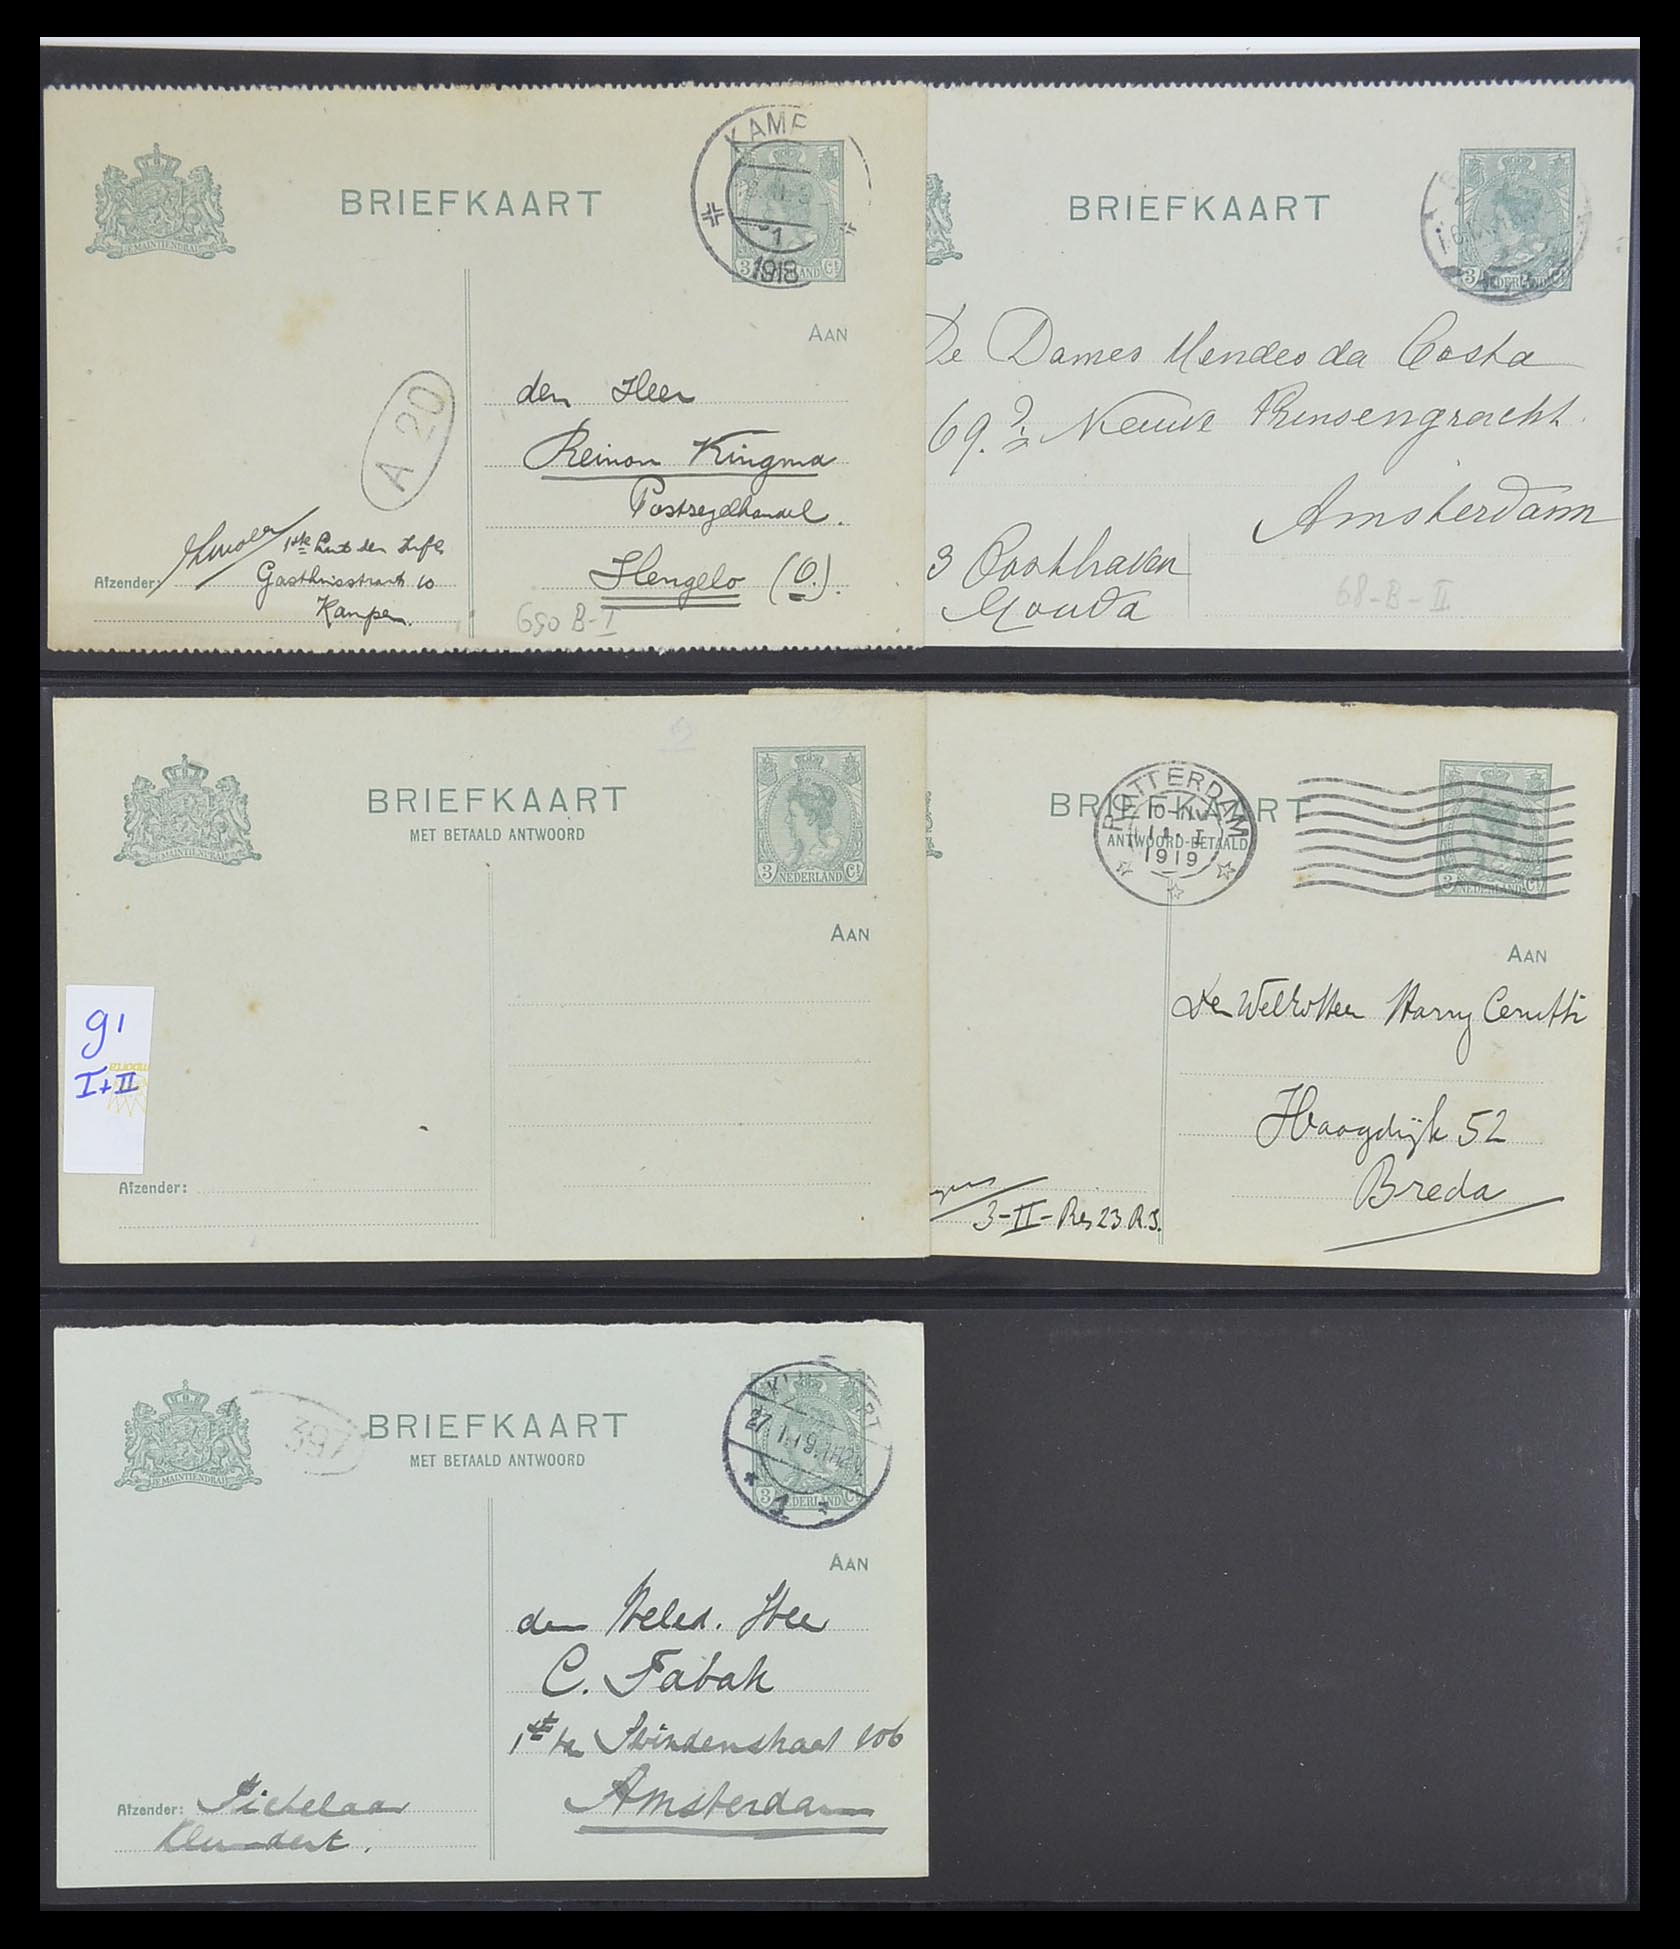 BRIEFKAART
JE MAINTIENDRAI
KAMP
1
1918
3 NEDERLAND Ct
AAN
A 20
den Heer
Reinon Kingma
Postzegelhandel.
Hengelo (O.).
Afzender:
1ste Luit der Inf
Gasthuisstraat 10
Kampen.
690 B-I
BRIEFKAART
3 NEDERLAND Ct
De Dames Mendes da Costa
69. Nieuwe Prinsengracht.
Amsterdam
3 Oosthaven
Gouda
68-B-II
BRIEFKAART
MET BETAALD ANTWOORD
JE MAINTIENDRAI
3 NEDERLAND Ct
AAN
91
I+II
Afzender:
BRIEFKAART
ANTWOORD-BETAALD
ROTTERDAM
1919
3 NEDERLAND Ct
AAN
Harry Cerutti
Haagdijk 52
Breda
3-II-Res 23 R.I.
BRIEFKAART
MET BETAALD ANTWOORD
JE MAINTIENDRAI
397
27.1.19.
1
3 NEDERLAND Ct
AAN
den Weled. Heer
C. Tabak
106
Amsterdam
Afzender:
Klundert.